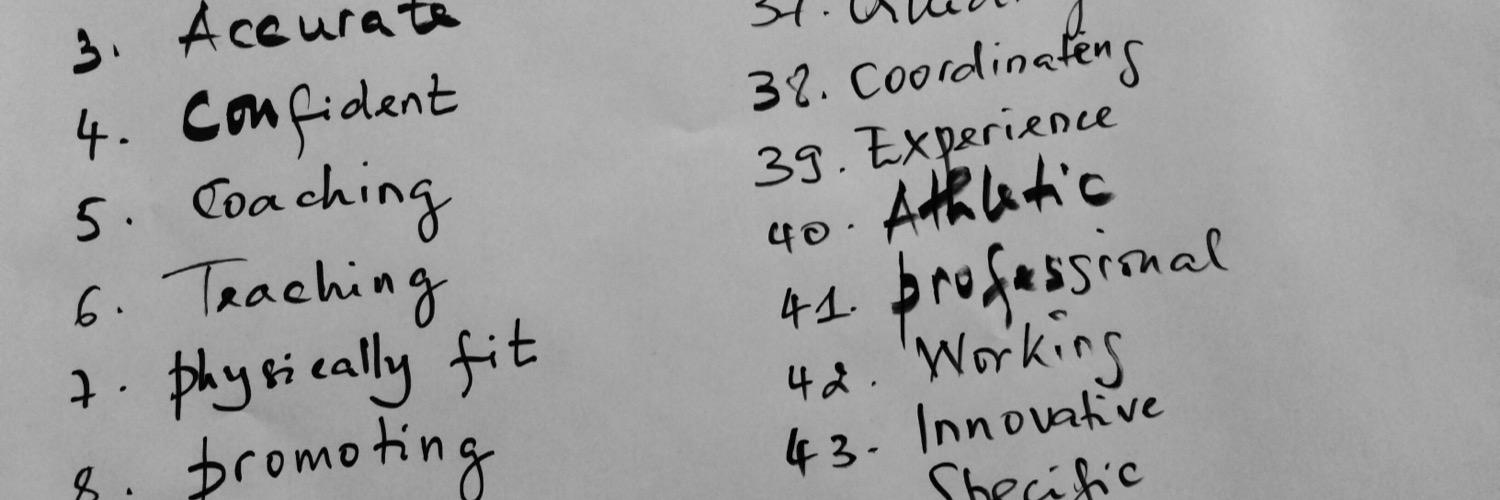 3. Accurate
4. Confident
5. Coaching
6. Teaching
7. physically fit
8. promoting
37.
38. Coordinating
39. Experience
40. Athletic
41. professional
42. Working
43. Innovative
Specific